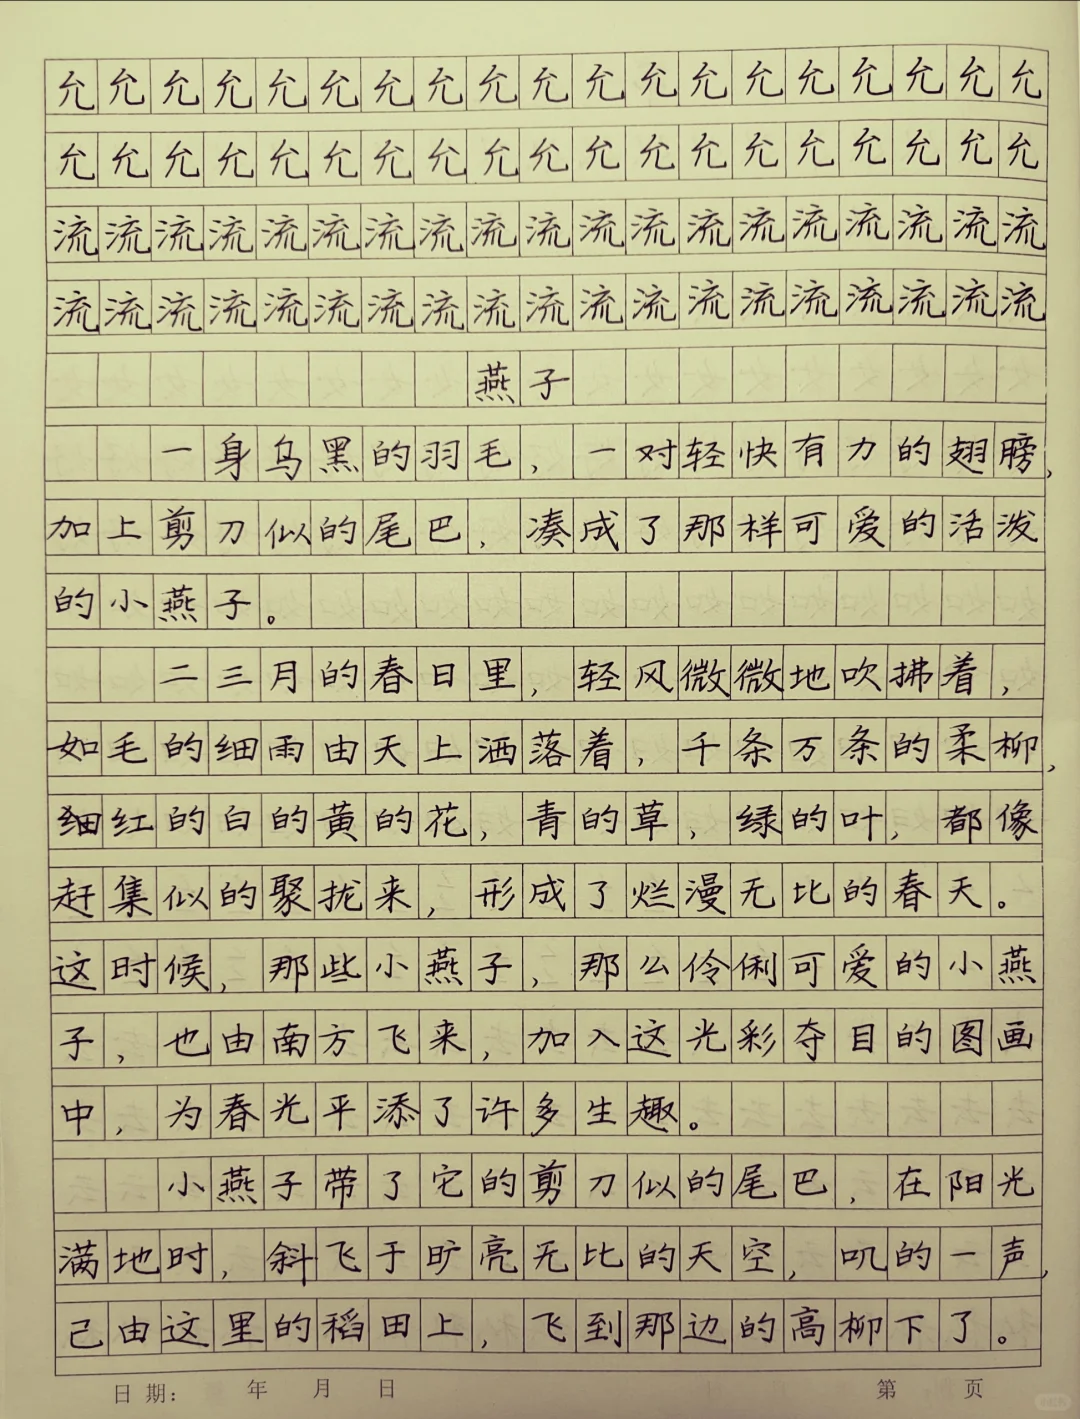 允允允允允允允允允允允允允允允允允允允
允允允允允允允允允允允允允允允允允允允
流流流流流流流流流流流流流流流流流流流
流流流流流流流流流流流流流流流流流流流
燕子
一身乌黑的羽毛，一对轻快有力的翅膀，
加上剪刀似的尾巴，凑成了那样可爱的活泼
的小燕子。
二三月的春日里，轻风微微地吹拂着，
如毛的细雨由天上洒落着，千条万条的柔柳，
细红的白的黄的花，青的草，绿的叶，都像
赶集似的聚拢来，形成了烂漫无比的春天。
这时候，那些小燕子，那么伶俐可爱的小燕
子，也由南方飞来，加入这光彩夺目的图画
中，为春光平添了许多生趣。
小燕子带了它的剪刀似的尾巴，在阳光
满地时，斜飞于旷亮无比的天空，叽的一声，
已由这里的稻田上，飞到那边的高柳下了。
日期： 年 月 日 第 页